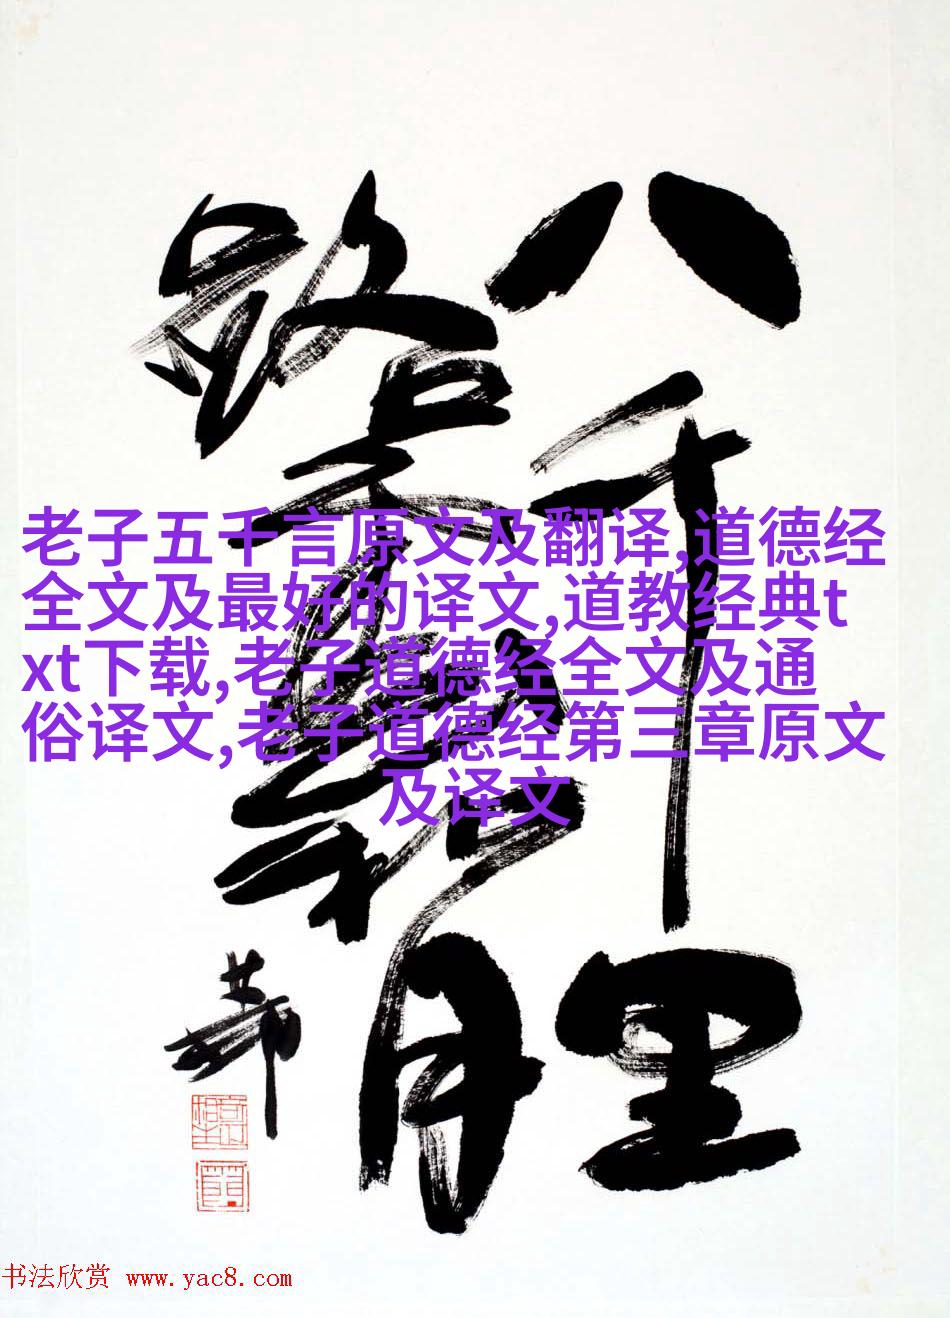 八千里
路云龢月
老子五千言原文及翻译,道德经
全文及最好的译文,道教经典t
xt下载,老子道德经全文及通
俗译文,老子道德经第三章原文
及译文
书法欣赏 www.yac8.com